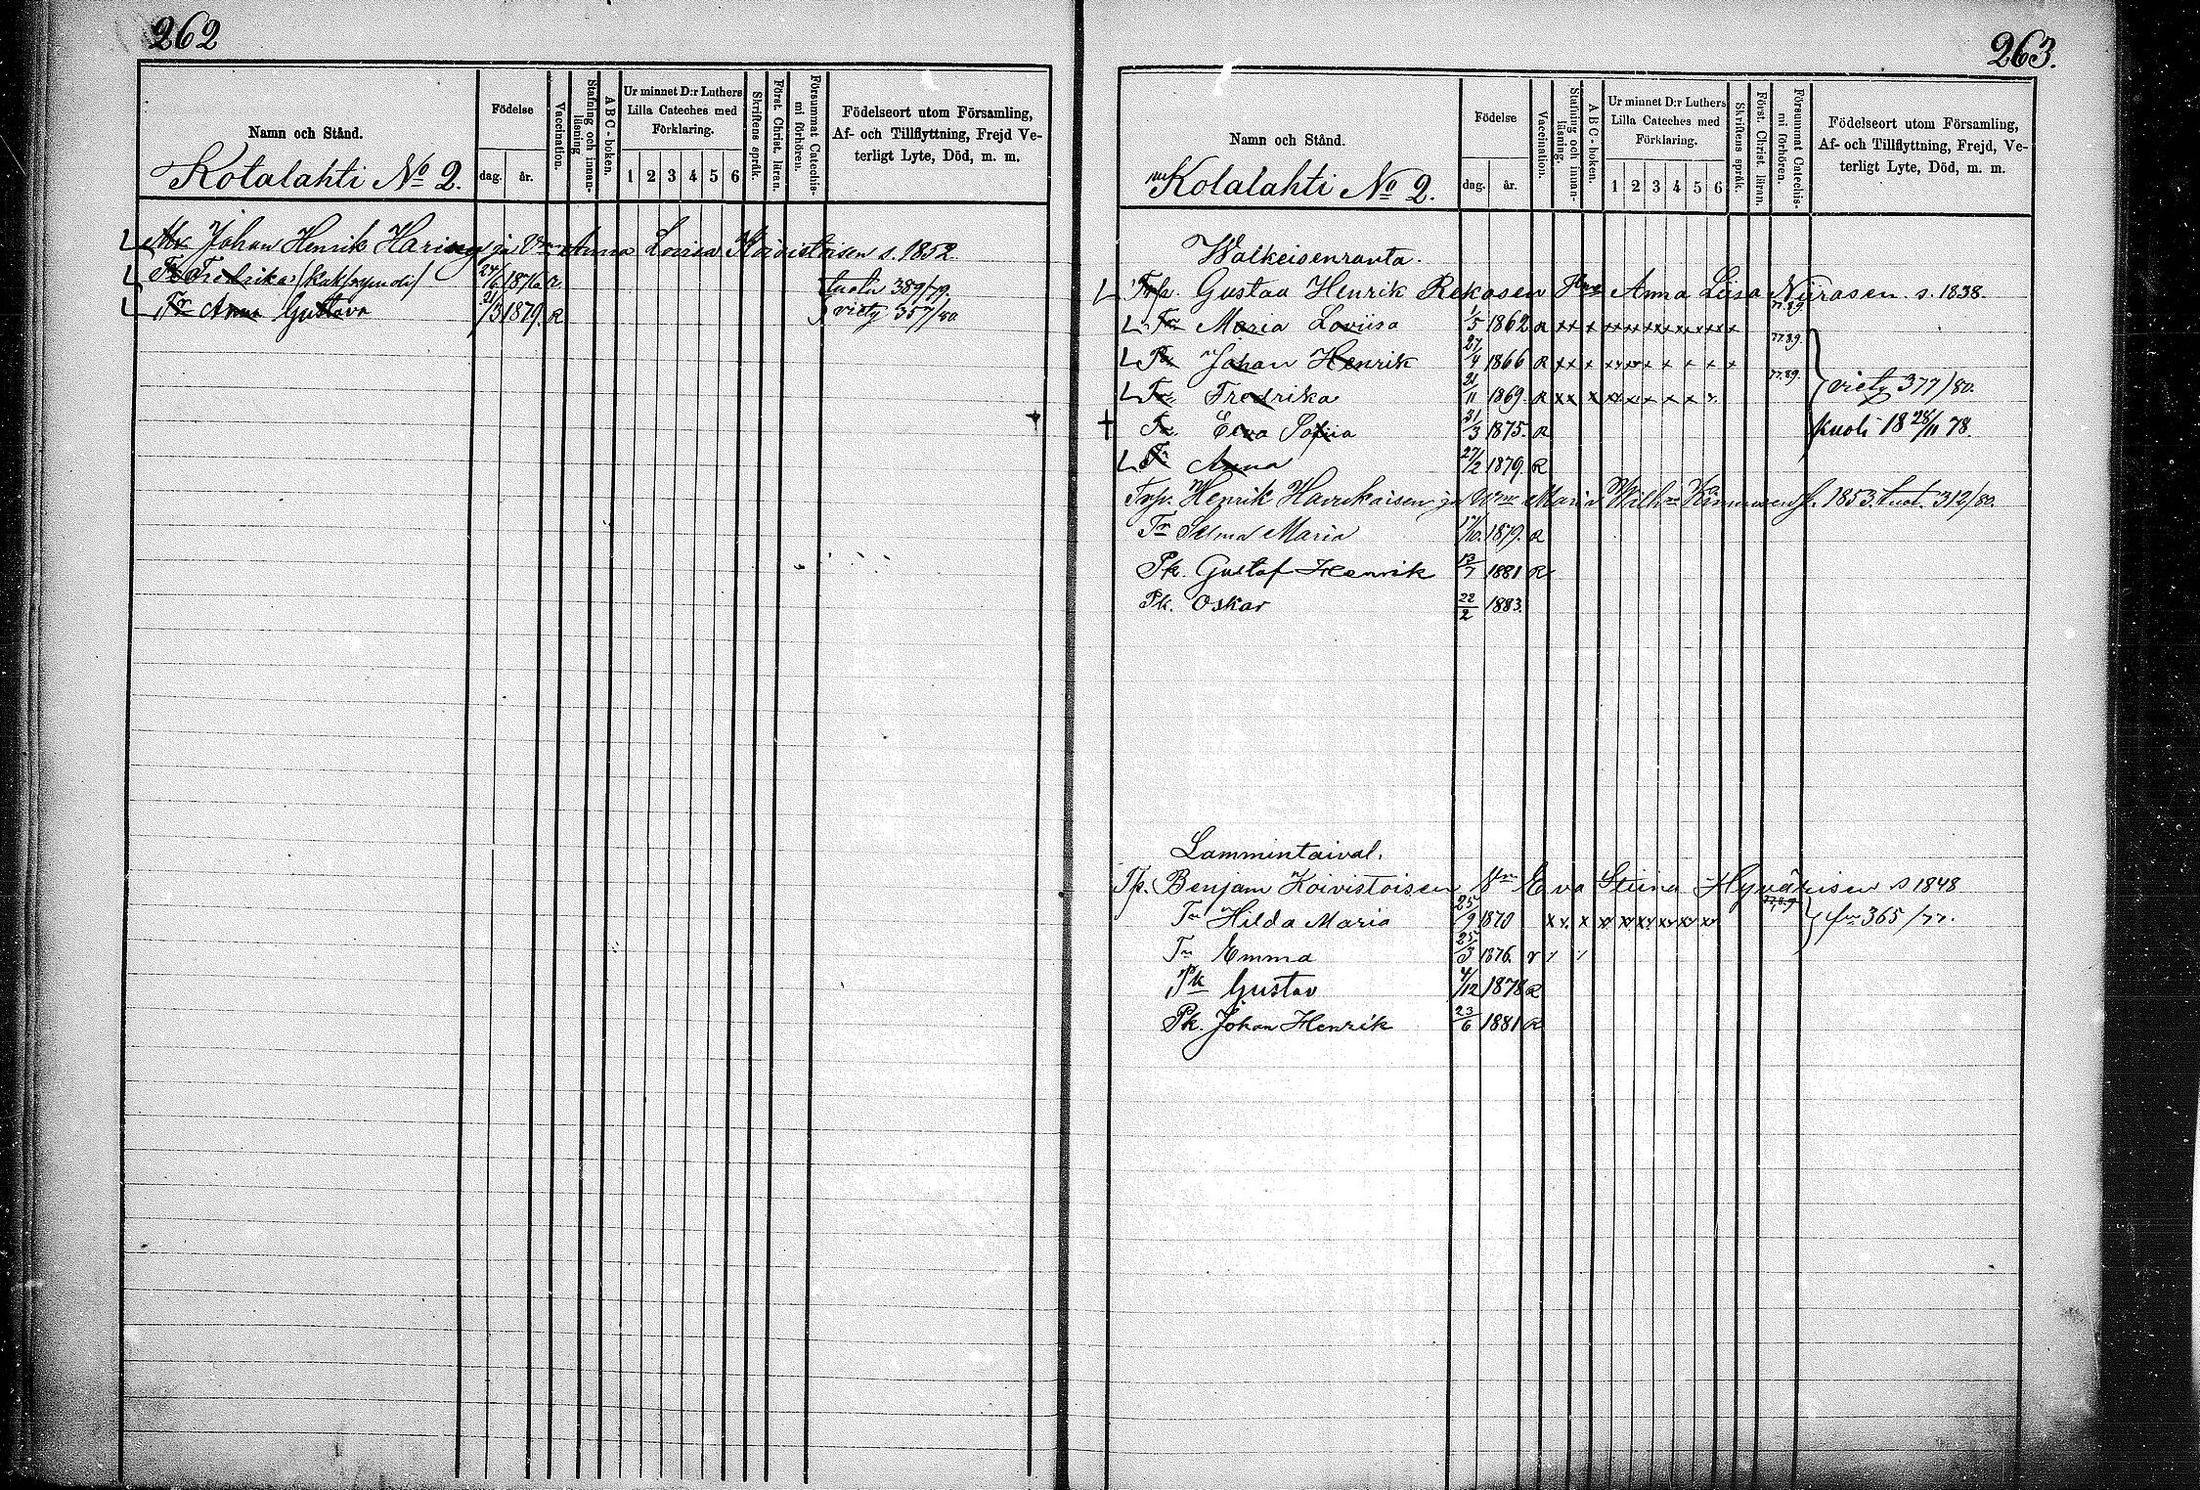 262
Namn och Stånd.
Födelse
dag. år.
Vaccination.
Stafning och innanläsning
ABC-boken.
Ur minnet D:r Luthers Lilla Cateches med Förklaring.
1 2 3 4 5 6
Skriftens språk.
Först. Christ. läran.
Försummat Catechismi förhören.
Födelseort utom Församling,
Af- och Tillflyttning, Frejd Ve-
terligt Lyte, Död, m. m.
Kotalahti No 2.
Johan Henrik Haring ja Vm Anna Lovisa Koivistoisen s. 1852.
Tr Fredrika 24/6 1876 R tuotu 389/79.
Tr Anna Gustava 21/3 1879. R viety 357/80
263.
Namn och Stånd.
Födelse
dag. år.
Vaccination.
Stafning och innanläsning.
ABC-boken.
Ur minnet D:r Luthers Lilla Cateches med Förklaring.
1 2 3 4 5 6
Skriftens språk.
Först. Christ. läran.
Försummat Catechismi förhören.
Födelseort utom Församling,
Af- och Tillflyttning, Frejd, Ve-
terligt Lyte, Död, m. m.
Kotalahti No 2.
Walkeisenranta.
Trp. Gustaa Henrik Rekosen Anna Liisa Niirasen s. 1838.
Tr Maria Loviisa 1/5 1862 R x x x x x x x x x x 77.89.
Pk Johan Henrik 27/4 1866 R x x x x x x x x x x 77.89.
Tr Fredrika 21/11 1869. R x x x x x x x x x 77.89. viety 377/80.
† Tr. Eeva Sofiia 31/3 1875. R kuoli 18 28/11 78.
Tr Anna 27/2 1879. R
Trp. Henrik Havukaisen ja Vm Maria Wilh:na 1853. tuot. 312/80.
Tr Selma Maria 17/10. 1879. R
Pk. Gustaf Henrik 13/7 1881 R
Pk. Oskar 22/2 1883.
Lammintaival.
Tp. Benjam Koivistoisen Vm Eva Stiina Hyvärisen s 1848
Tr Hilda Maria 25/9 1870 x x x x x x x x x 77.8.9 365/77.
Tr Emma 25/3 1876. r
Pk Gustav 4/12 1878 R
Pk. Johan Henrik 23/6 1881 R